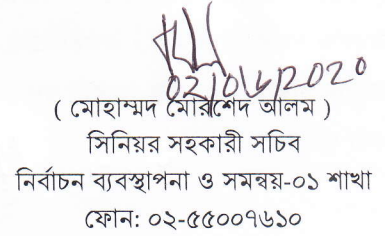 02/06/2020
( মোহাম্মদ মোরশেদ আলম )
সিনিয়র সহকারী সচিব
নির্বাচন ব্যবস্থাপনা ও সমন্বয়-০১ শাখা
ফোন: ০২-৫৫০০৭৬১০